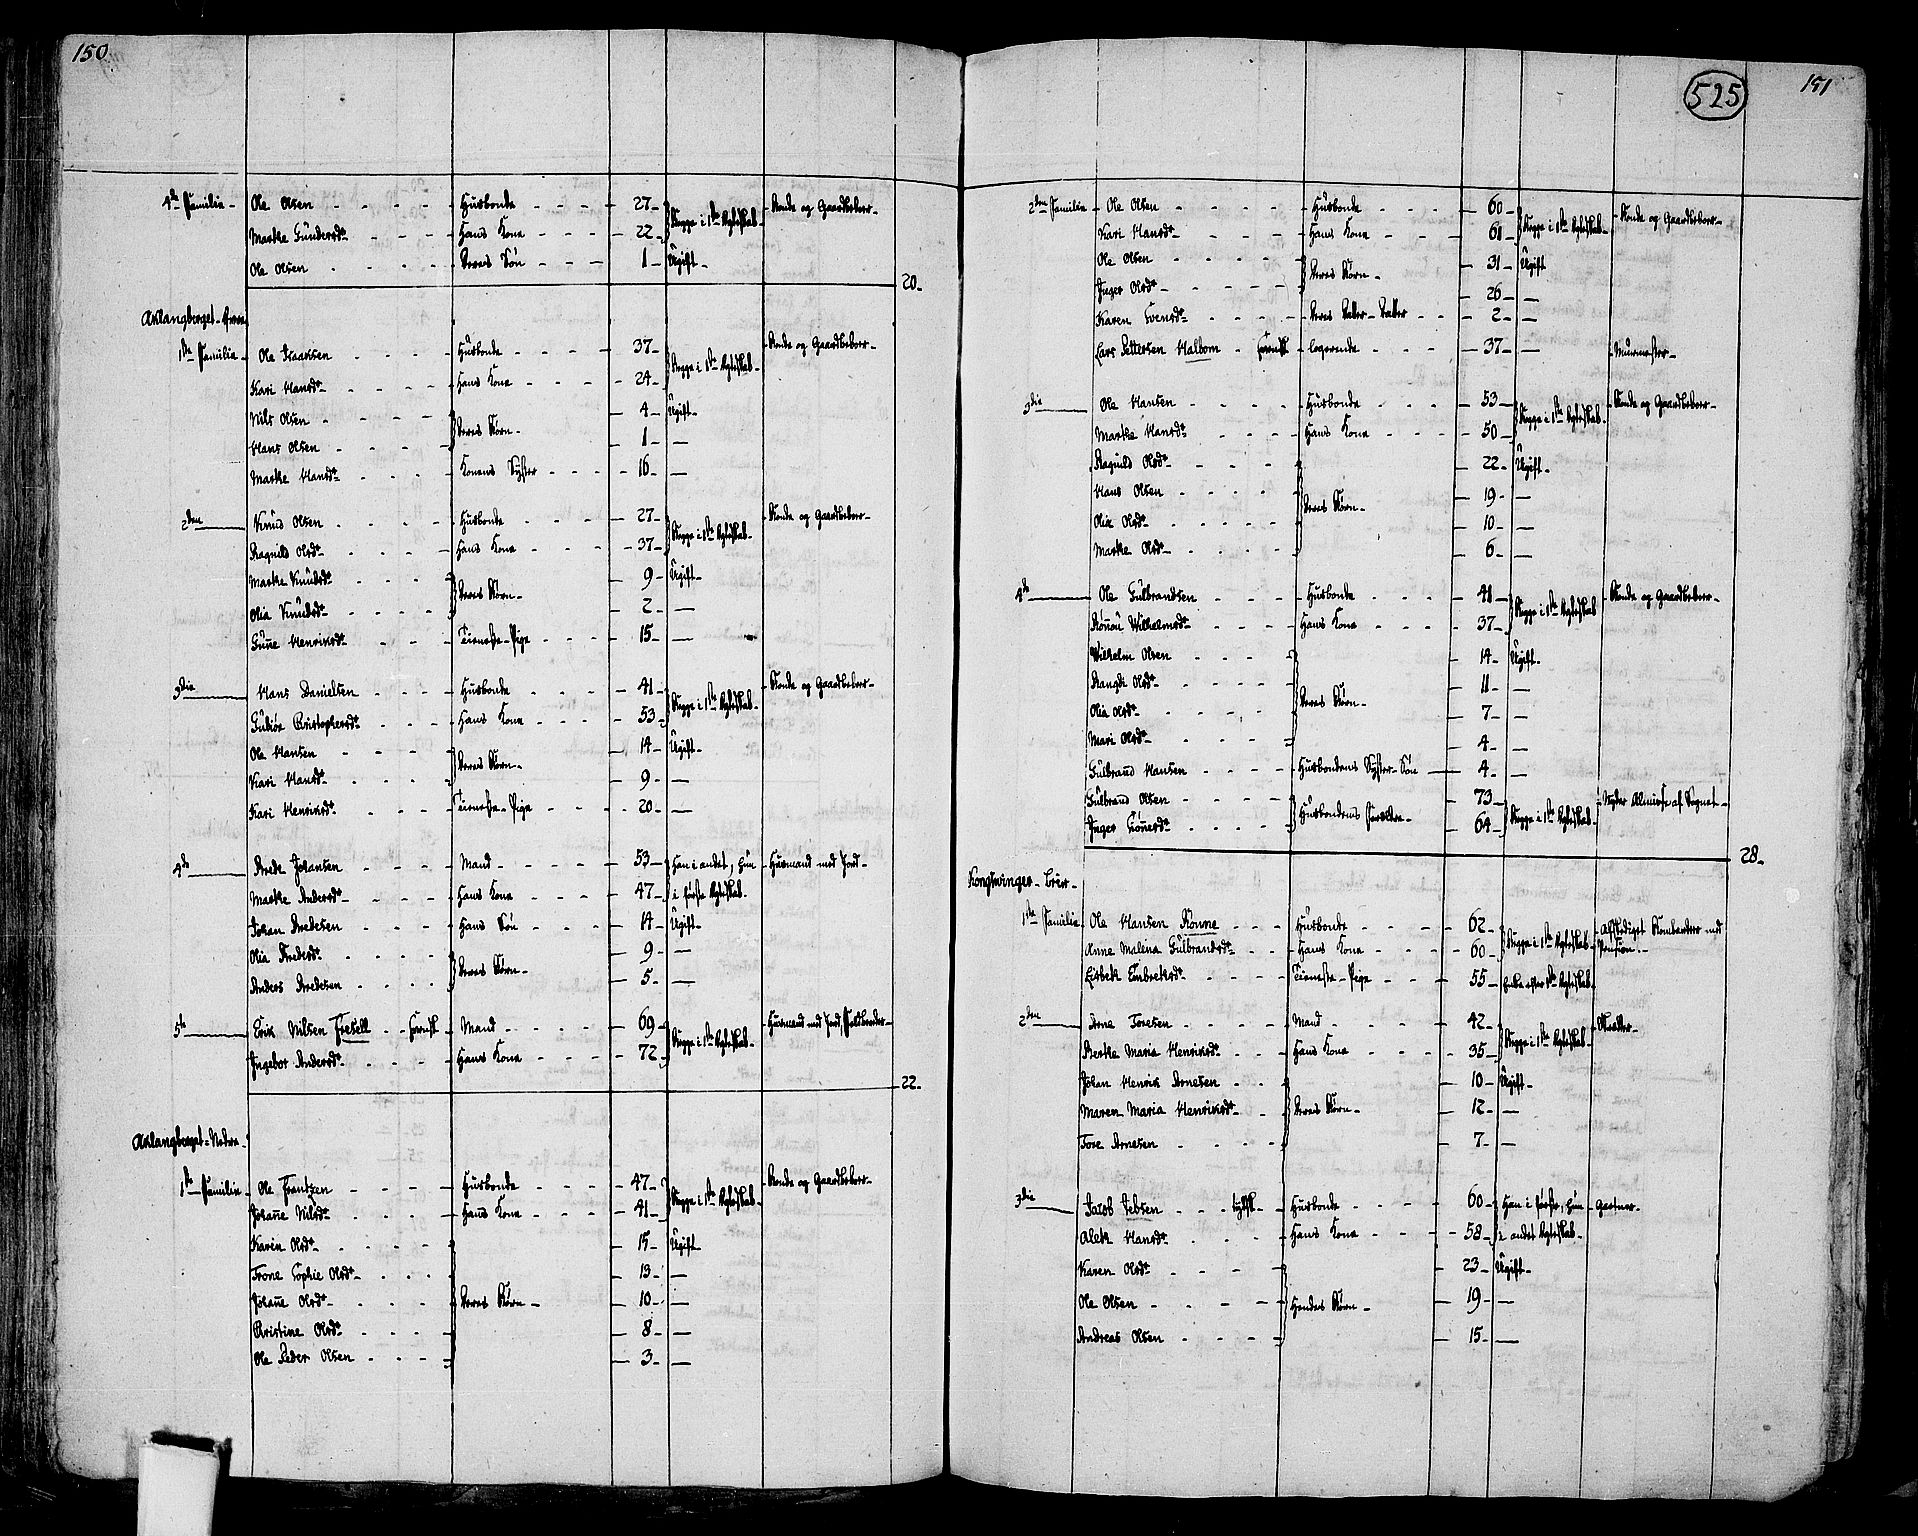 150
4de Familie - Ole Olsen - - - - Husbonde - - - 27 - Begge i 1ste Ægteskab - Bonde og Gaardbeboer -
Marthe Gundersdt - - - Hans Kone - - - 22 -
Ole Olsen - - - - Deres Søn - - - 1 - Ugift -
20 -
Aklangberget - Øvre
1ste Familie - Ole Isaaksen - - - Husbonde - - - 37 - Begge i 1ste Ægteskab - Bonde og Gaardbeboer -
Kari Hansdt - - - - Hans Kone - - - 24 -
Nils Olsen - - - - Deres Børn - 4 - Ugift -
Hans Olsen - - - - 1 - —
Marthe Hansdt - - - Konens Syster - - - 16 - —
2den Knud Olsen - - - - Husbonde - - - 27 - Begge i 1ste Ægteskab - Bonde og Gaardbeboer -
Ragnild Olsdt - - - - Hans Kone - - - 37 -
Marthe Knudsdt - - - Deres Børn - 9 - Ugift -
Olia Knudsdt - - - - 2 - —
Gune Henriksdt - - - Tieneste-Pige - - - 15 - —
3die Hans Danielsen - - - Husbonde - - - 41 - Begge i 1ste Ægteskab - Bonde og Gaardbeboer -
Gubiør Kristophersdt - - - Hans Kone - - - 53 -
Ole Hansen - - - Deres Børn - 14 - Ugift -
Kari Hansdt - - - - 9 - —
Kari Henriksdt - - - Tieneste-Pige - - - 20 - —
4de Arede Johansen - - - Mand - - - 53 - Han i andet, Hun - Huusmand med Jord -
Marthe Andersdt - - - Hans Kone - - - 47 - i første Ægteskab -
Johan Aredesen - - - Hans Søn - - - 14 - Ugift -
Olia Aredesdt - - - - Deres Børn - 9 - —
Anders Aredesen - - - 5 - —
5te Erik Nilsen Fresell - - Svensk - Mand - - - 69 - Begge i 1ste Ægteskab - Huusmand med Jord,
Ingebor Andersdt - - - Hans Kone - - - 72 -
22 -
Aklangberget - Nedre -
1ste Familie - Ole Frantzen - - - Husbonde - - - 47 - Begge i 1ste Ægteskab - Bonde og Gaardbeboer -
Johane Nilsdt - - - Hans Kone - - - 41 -
Karen Olsdt - - - - 15 - Ugift -
Trone Sophie Olsdt - - - 13 - —
Johane Olsdt - - - - Deres Børn - 10 - —
Kristine Olsdt - - - 8 - —
Ole Peder Olsen - - - 3 - —
525
151
2den Familie - Ole Olsen - - - Husbonde - - - 60 - Begge i 1ste Ægteskab - Bonde og Gaardbeboer -
Kari Hansdt - - - - Hans Kone - - - 61 -
Ole Olsen - - - - Deres Børn - 31 - Ugift
Inger Olsdt - - - - 26 - —
Karen Svensdt - - - Deres Datter-Datter - - 2 - —
Lars Pettersen Halbom - Svensk - logerende - - 37 - — Murmester -
3die Ole Hansen - - - Husbonde - - - 53 - Begge i 1ste Ægteskab - Bonde og Gaardbeboer -
Marthe Hansdt - - - Hans Kone - - - 50 -
Ragnild Olsdt - - - 22 - Ugift -
Hans Olsen - - - - Deres Børn - 19 - —
Olia Olsdt - - - - 10 - —
Marthe Olsdt - - - - 6 - —
4de Ole Gulbrandsen - - - Husbonde - - - 41 - Begge i 1ste Ægteskab - Bonde og Gaardbeboer -
Rønau Wilhelmsdt - - - Hans Kone - - - 37 -
Wilhelm Olsen - - - 14 - Ugift -
Rangdi Olsdt - - - - Deres Børn - 11 - —
Olia Olsdt - - - - 7 - —
Mari Olsdt - - - - 4 - —
Gulbrand Hansen - - - Husbondens Syster-Søn — 4 - —
Gulbrand Olsen - - - Husbondens Forældre - 73 - Begge i 1ste Ægteskab - Nyder Almisse af Sognet -
Inger - - - - 64 -
28 -
Kongswinger -
1ste Familie Ole Hansen Rønne - Husbonde - - - 62 - Begge i 1ste Ægteskab - Afskediget Bombardeer med
Anne Malena Gulbrandsdt - - Hans Kone - - - 60 - Pension -
Lisbeth Embretsdt - - - Tieneste-Pige - - - 55 - Enke efter 1ste Ægteskab -
2den Arne Toresen - - - Mand - - - 42 - Begge i 1ste Ægteskab -
Berthe Maria Henriksdt - - Hans Kone - - - 35 -
Johan Henrik Arnesen - - - 10 - Ugift -
Maren Maria Henriksdt - - Deres Børn - 12 - —
Tore Arnesen - - - - 7 - —
3die Jacob Jebsen - - - tydsk - Husbonde - - - 60 - Han i første, Hun - Gartner -
Aleth Hansdt - - - Hans Kone - - - 58 - i andet Ægteskab -
Karen Olsdt - - - 23 - Ugift -
Ole Olsen - - - - Hendes Børn - 19 - —
Andreas Olsen - - - - 15 - —